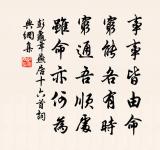 事事皆由命
窮能各有時
窮通吾順處
雖命亦何為
彭龜年燕居十六首詞
興綢集